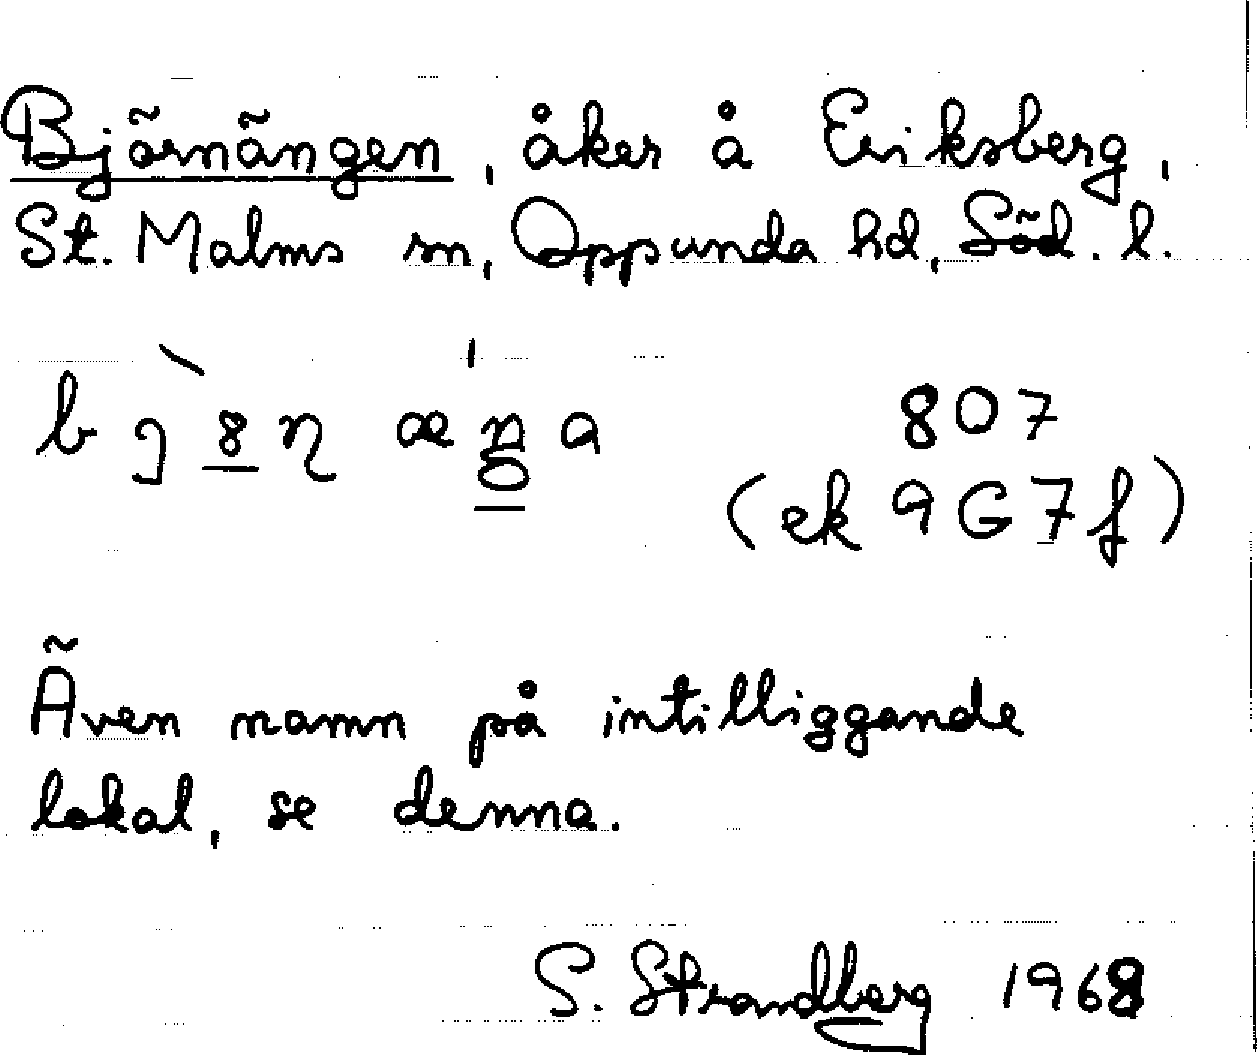 Björnängen, åker å Eriksberg,
St. Malms sn, Oppunda hd, Söd. l.
807
(ek 9G7f)
Även namn på intilliggande
lokal, se denna.
S. Strandberg 1968